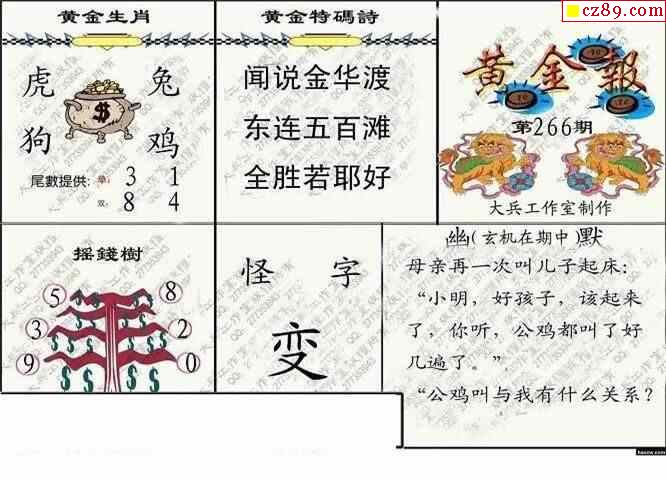 cz89.com
黄金生肖
虎 兔
狗 鸡
$
尾數提供: 单: 3 1
双: 8 4
黄金特碼詩
闻说金华渡
东连五百滩
全胜若耶好
黄金報
第266期
大兵工作室制作
摇錢樹
5 8
3 2
9 0
怪 字
变
幽(玄机在期中)默
母亲再一次叫儿子起床:
“小明，好孩子，该起来
了，你听，公鸡都叫了好
几遍了。”
“公鸡叫与我有什么关系?